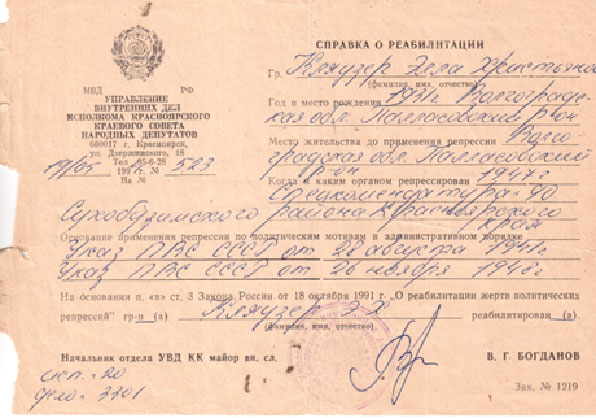 МВД РФ
УПРАВЛЕНИЕ
ВНУТРЕННИХ ДЕЛ
ИСПОЛКОМА КРАСНОЯРСКОГО
КРАЕВОГО СОВЕТА
НАРОДНЫХ ДЕПУТАТОВ
660017 г. Красноярск,
ул. Дзержинского, 18
Тел. 25-6-28
19/05 1992г. № 523
На №
СПРАВКА О РЕАБИЛИТАЦИИ
Гр. Кляузер Элла Христьянов
(фамилия, имя, отчество)
Год и место рождения 1931г. Волгоград-
ская обл. Палласовский р-он
Место жительства до применения репрессии Волго
градская обл. Палласовский
р-он
Когда и каким органом репрессирован 1947г
Спецкомендатура-40
Сухобузимского района Красноярского
края
Основание применения репрессии по политическим мотивам в административном порядке
Указ ПВС СССР от 28 августа 1941г
Указ ПВС СССР от 26 ноября 1948г
На основании п. «в» ст. 3 Закона России от 18 октября 1991 г. „О реабилитации жертв политических
репрессий" гр-н (а) Кляузер Э Х реабилитирован (а).
(фамилия, имя, отчество)
Начальник отдела УВД КК майор вн. сл. В. Г. БОГДАНОВ
исп.-20
дело-3301
Зак. № 1219